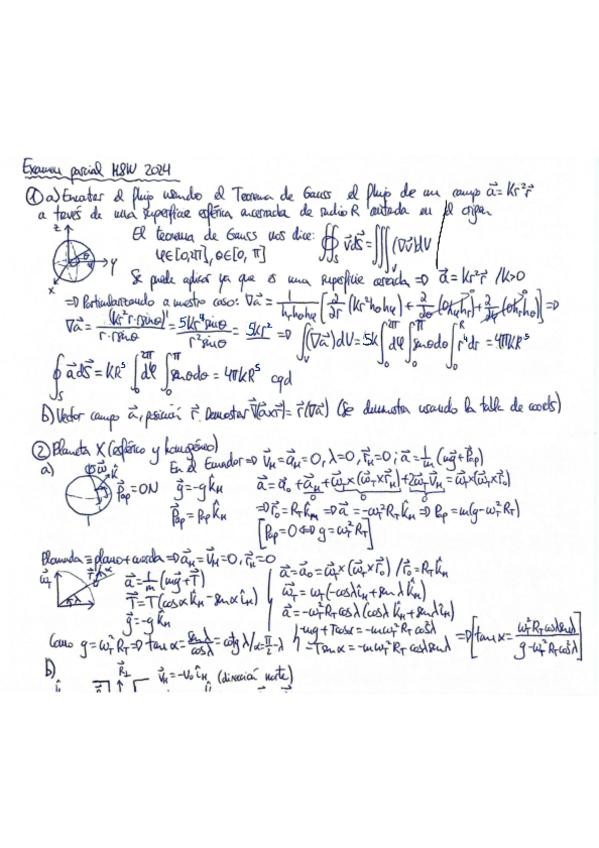 Examen parcial M&W 2024
① a) Encontrar el flujo usando el Teorema de Gauss el flujo de un campo a⃗ = Kr²r⃗
a través de una superficie esférica encerrada de radio R centrada en el origen
El teorema de Gauss nos dice: ∯_S v⃗ dS⃗ = ∭_V (∇v⃗) dV
φ∈[0,2π], θ∈[0, π]
z y x
Se puede aplicar ya que es una superficie cerrada ⇒ a⃗ = Kr²r⃗ /k>0
⇒ Particularizando a nuestro caso: ∇a⃗ = 1/(h_r h_θ h_φ) [∂/∂r (Kr³ h_θ h_φ) + ∂/∂θ (0 h_φ h_r) + ∂/∂φ (0 h_r h_θ)] ⇒
∇a⃗ = (kr³ r·r senθ)'/(r·r senθ) = 5Kr⁴senθ/(r²senθ) = 5kr² ⇒ ∫∫∫_V (∇a⃗)dV = 5k ∫₀^2π dφ ∫₀^π senθdθ ∫₀^R r⁴dr = 4πKR⁵
∮_S a⃗ dS⃗ = KR⁵ ∫₀^2π dφ ∫₀^π senθdθ = 4πKR⁵ cqd
b) Vector campo a⃗, posición r⃗. Demostrar ∇(a⃗×r⃗) = r⃗(∇a⃗) (Se demuestra usando la tabla de coords)
② Planeta X (esférico y homogéneo)
a) En el Ecuador ⇒ v⃗_M = a⃗_M = 0, λ=0, r⃗_M = 0; a⃗ = 1/m (mg⃗ + P⃗ap)
ω⃗ k̂ P⃗ap = 0N g⃗ = -g k̂_M a⃗ = a⃗_0 + a⃗_M + ω⃗_T×(ω⃗_T×r⃗_M) + 2ω⃗_T v⃗_M = ω⃗_T×(ω⃗_T×r⃗_0)
P⃗ap = Pap k̂_M ⇒ r⃗_0 = R_T k̂_M ⇒ a⃗ = -ω_T² R_T k̂_M ⇒ Pap = m(g-ω_T² R_T)
[Pap = 0 ⇔ g = ω_T² R_T]
Plomada ≡ plomo + cuerda ⇒ a⃗_M = v⃗_M = 0, r⃗_M = 0
a⃗ = a⃗_0 = ω⃗_T×(ω⃗_T×r⃗_0) / r⃗_0 = R_T k̂_M
ω⃗_T T⃗ α λ a⃗ = 1/m (mg⃗ + T⃗) ω⃗_T = ω_T (-cosλ î_M + senλ k̂_M)
T⃗ = T(cosα k̂_M - senα î_M) a⃗ = -ω_T² R_T cosλ (cosλ k̂_M + senλ î_M)
g⃗ = -g k̂_M
-mg + Tcosα = -mω_T² R_T cos²λ
-Tsenα = -mω_T² R_T cosλsenλ ⇒ [tanα = ω_T² R_T cosλsenλ/(g-ω_T² R_T cos²λ)]
Como g = ω_T² R_T ⇒ tanα = senλ/cosλ = cotgλ / α = π/2 - λ
b) R⃗_⊥ v⃗_M = -v_0 î_M (dirección norte)